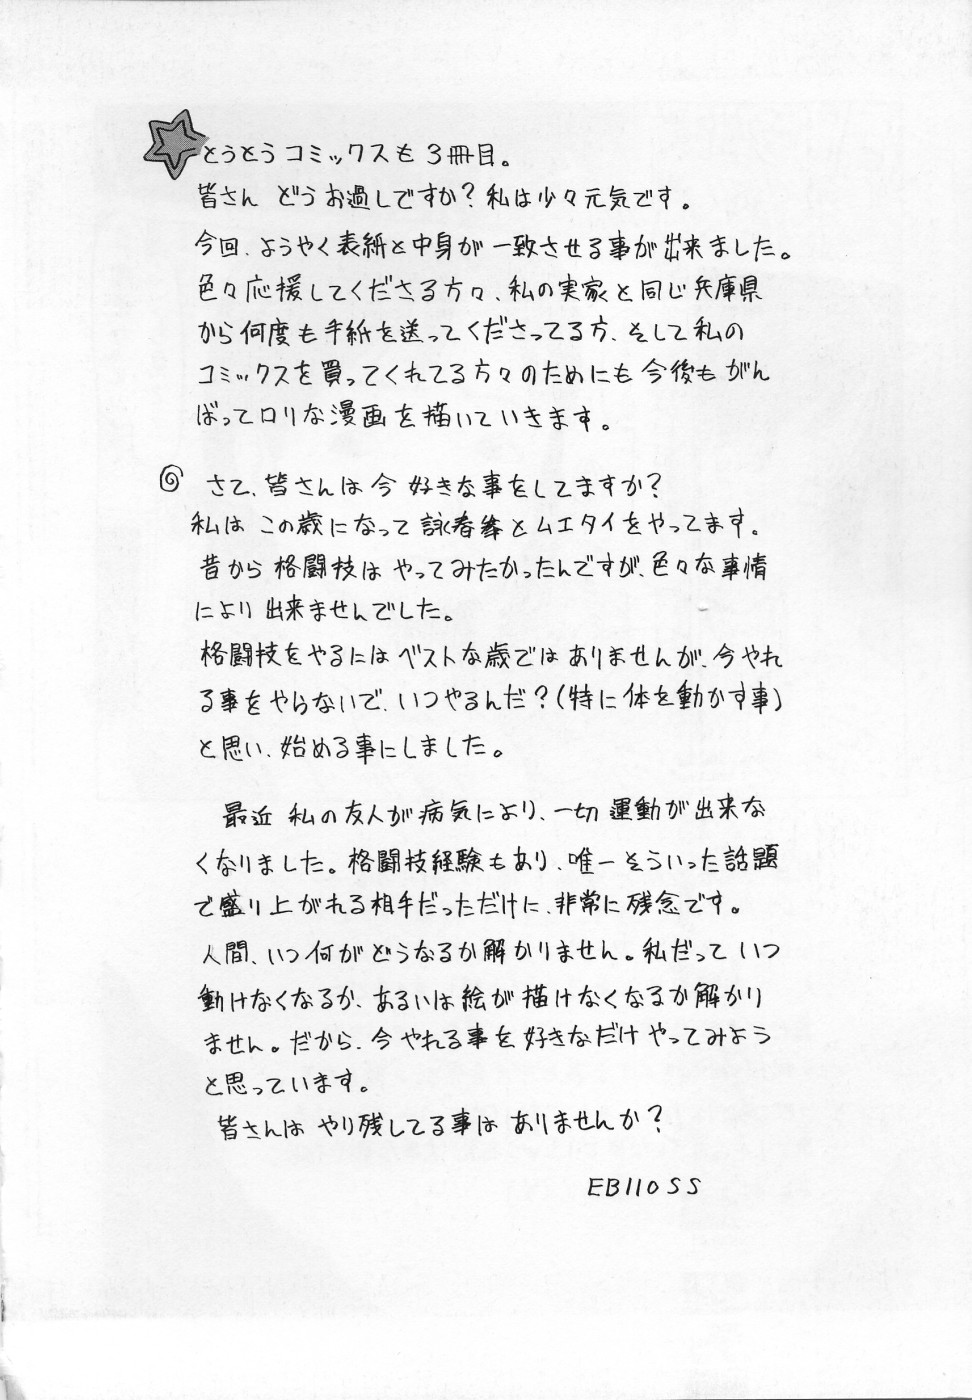 とうとうコミックスも3冊目。
皆さん どうお過しですか?私は少々元気です。
今回、ようやく表紙と中身が一致させる事が出来ました。
色々応援してくださる方々、私の実家と同じ兵庫県
から何度も手紙を送ってくださってる方、そして私の
コミックスを買ってくれてる方々のためにも今後もがん
ばってロリな漫画を描いていきます。
さて、皆さんは今 好きな事をしてますか?
私は この歳になって詠春拳とムエタイをやってます。
昔から格闘技は やってみたかったんですが、色々な事情
により出来ませんでした。
格闘技をやるには ベストな歳では ありませんが、今やれ
る事をやらないで、いつやるんだ?(特に体を動かす事)
と思い、始める事にしました。
最近 私の友人が病気により、一切運動が出来な
くなりました。格闘技経験もあり、唯一そういった話題
で盛り上がれる相手だっただけに、非常に残念です。
人間、いつ何がどうなるか解かりません。私だって いつ
動けなくなるか、あるいは絵が描けなくなるか解かり
ません。だから、今やれる事を好きなだけやってみよう
と思っています。
皆さんは やり残してる事は ありませんか?
EB110SS